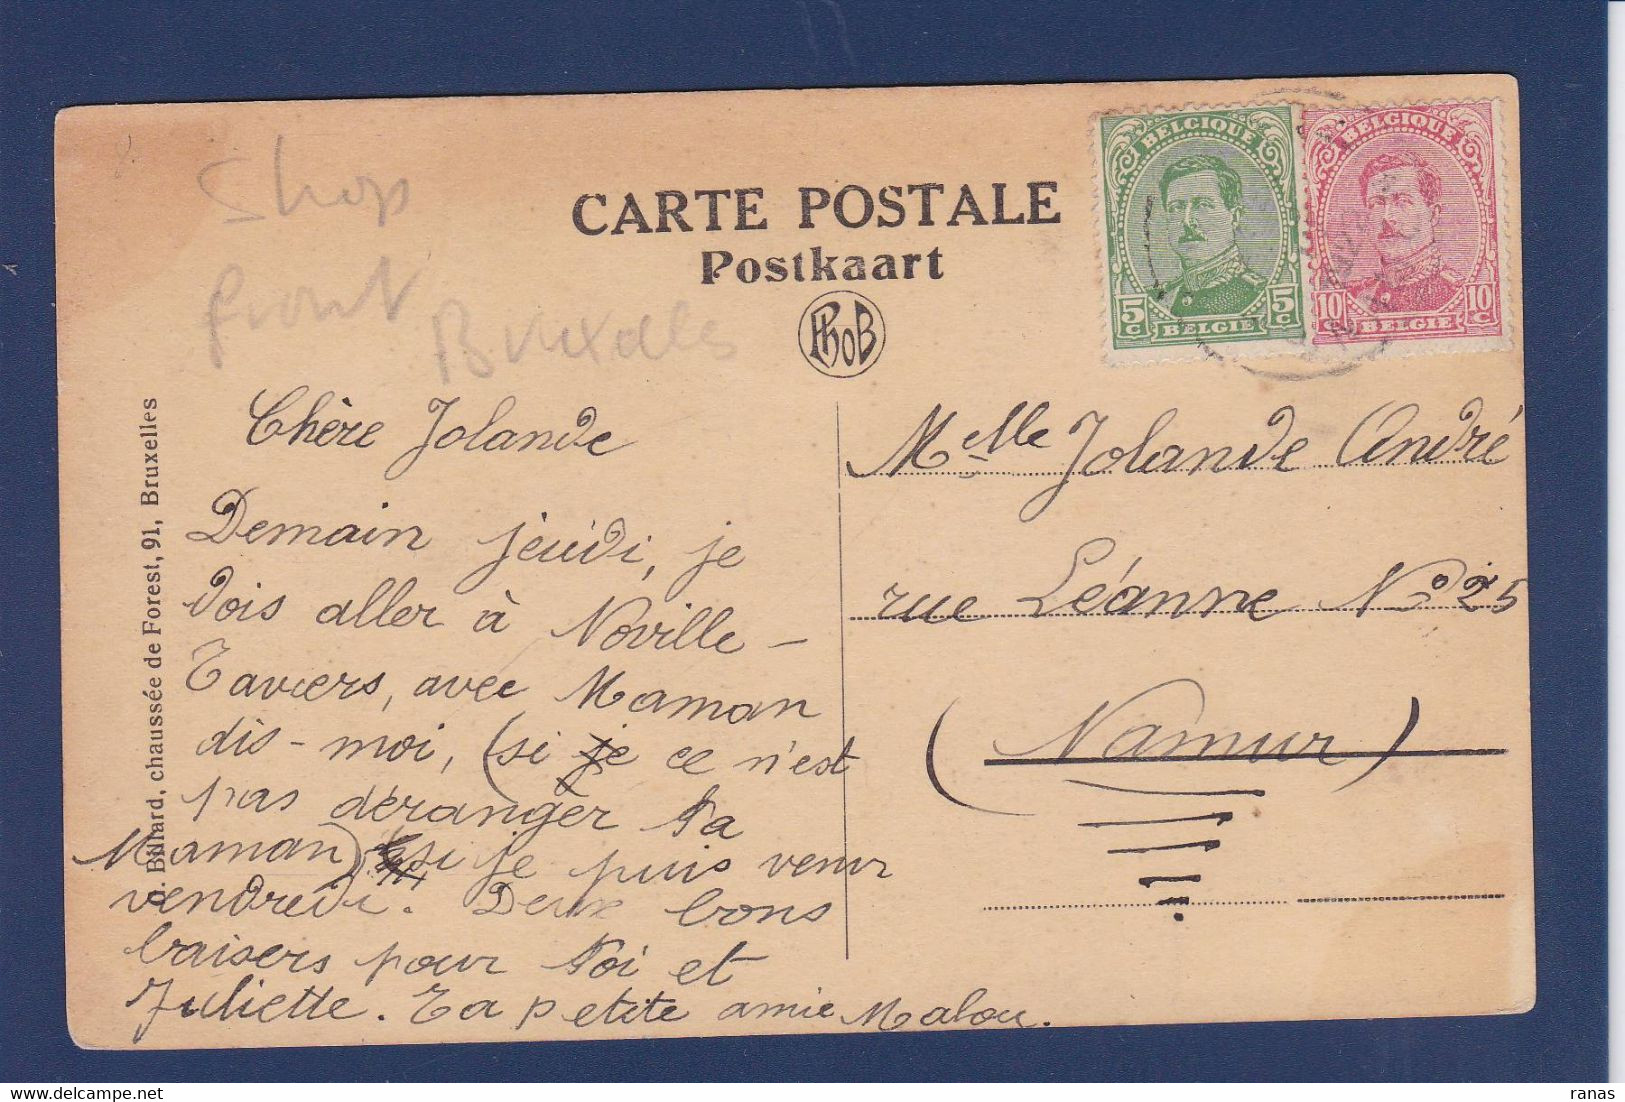 Shop
front
Bruxelles
CARTE POSTALE
Postkaart
PhoB
BELGIQUE
5 c 5 c
BELGIE
BELGIQUE
10 c 10 c
BELGIE
D. Billard, chaussée de Forest, 91, Bruxelles
Chère Jolande
Demain jeudi, je
dois aller à Noville-
Taviers, avec Maman
dis-moi, (si ce n'est
pas déranger ta
Maman) si je puis venir
vendredi. Deux bons
baisers pour toi et
Juliette. Ta petite amie Malou.
Melle Jolande André
rue Léanne No 25
(Namur)
delcampe.net
ranas